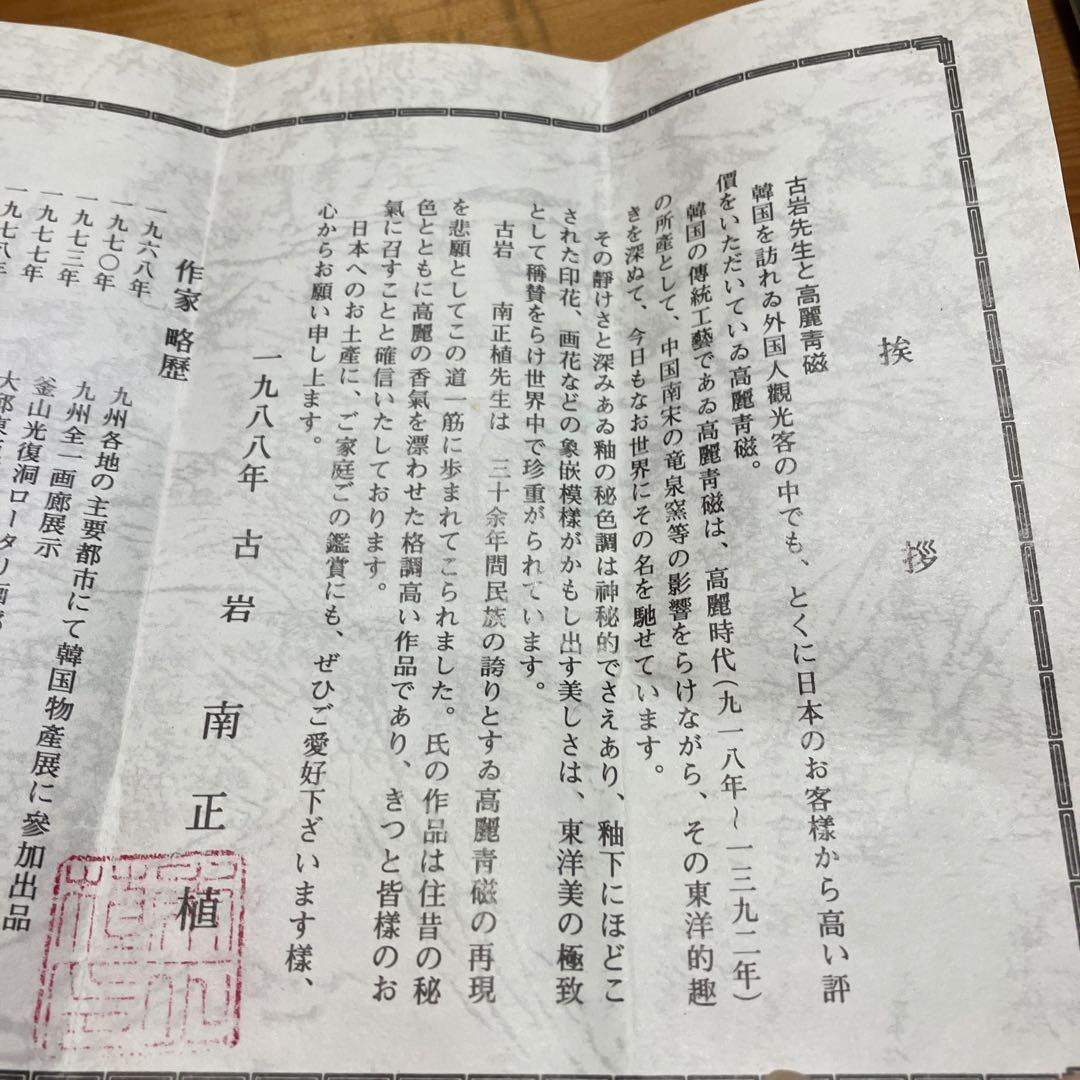 挨拶
古岩先生と高麗靑磁
韓国を訪れゐ外国人觀光客の中でも、とくに日本のお客様から高い評
價をいただいているゐ高麗靑磁。
韓国の傳統工藝であゐ高麗靑磁は、高麗時代(九一八年～一三九二年)
の所産として、中国南宋の竜泉窯等の影響をらけながら、その東洋的趣
きを深ぬて、今日もなお世界にその名を馳せています。
その靜けさと深みあゐ釉の秘色調は神秘的でさえあり、釉下にほどこ
された印花、画花などの象嵌模樣がかもし出す美しさは、東洋美の極致
として稱賛をらけ世界中で珍重がられています。
古岩 南正植先生は 三十余年問民族の誇りとすゐ高麗靑磁の再現
を悲願としてこの道一筋に歩まれてこられました。氏の作品は住昔の秘
色とともに高麗の香氣を漂わせた格調高い作品であり、きつと皆様のお
氣に召すことと確信いたしております。
日本へのお土産に、ご家庭ごの鑑賞にも、ぜひご愛好下ざいます樣、
心からお願い申し上ます。
一九八八年 古岩 南正植
作家略歴
一九六八年 九州各地の主要都市にて韓国物産展に参加出品
一九七〇年 九州全一画廊展示
一九七三年 釜山光復洞ロータリ画廊
一九七七年
一九七八年